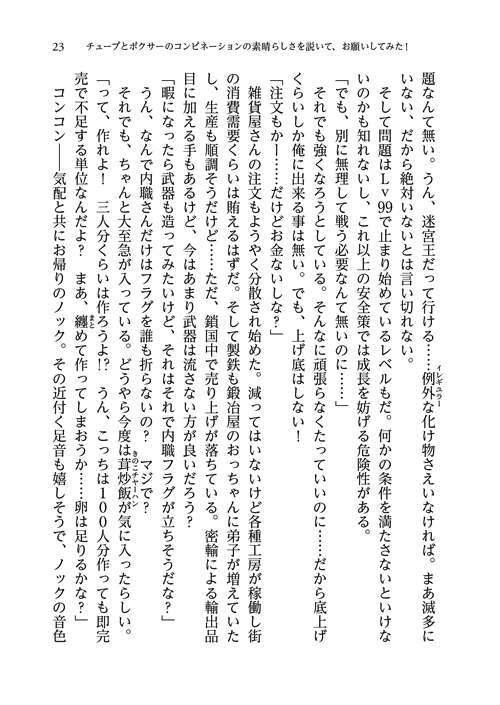 23　チューブとボクサーのコンビネーションの素晴らしさを説いて、お願いしてみた！
題なんて無い。うん、迷宮王だって行ける……例外な化け物さえいなければ。まあ滅多に
イレギュラー
いない、だから絶対いないとは言い切れない。
　そして問題はＬｖ99で止まり始めているレベルもだ。何かの条件を満たさないといけな
いのかも知れないし、これ以上の安全策では成長を妨げる危険性がある。
「でも、別に無理して戦う必要なんて無いのに……」
　それでも強くなろうとしている。そんなに頑張らなくたっていいのに……だから底上げ
くらいしか俺に出来る事は無い。でも、上げ底はしない！
「注文もかー……だけどお金ないしな？」
　雑貨屋さんの注文もようやく分散され始めた。減ってはいないけど各種工房が稼働し街
の消費需要くらいは賄えるはずだ。そして製鉄も鍛冶屋のおっちゃんに弟子が増えていた
し、生産も順調そうだけど……ただ、鎖国中で売り上げが落ちている。密輸による輸出品
目に加える手もあるけど、今はあまり武器は流さない方が良いだろう？
「暇になったら武器も造ってみたいけど、それはそれで内職フラグが立ちそうだな？」
　うん、なんで内職さんだけはフラグを誰も折らないの？　マジで？
　それでも、ちゃんと大至急が入っている。どうやら今度は茸炒飯が気に入ったらしい。
きのこチャーハン
「って、作れよ！　三人分くらいは作ろうよ!?　うん、こっちは１００人分作っても即完
売で不足する単位なんだよ？　まあ、纏めて作ってしまおうか……卵は足りるかな？」
まと
　コンコン――気配と共にお帰りのノック。その近付く足音も嬉しそうで、ノックの音色